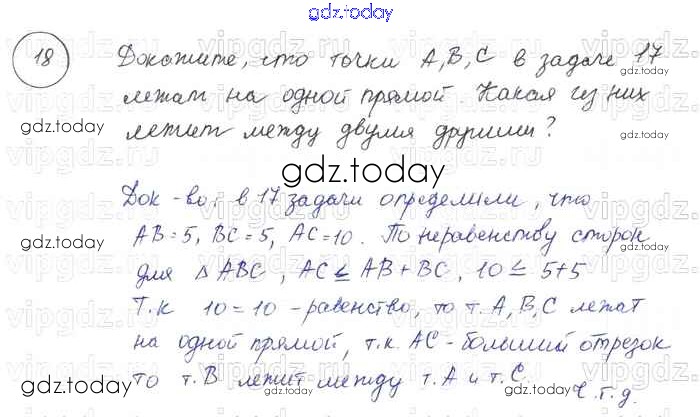 gdz.today
18 Докажите, что точки A, B, C в задаче 17
лежат на одной прямой Какая из них
gdz.today gdz.today
лежит между двумя другими?
gdz.today
Док-во: в 17 задачи определили, что
AB=5, BC=5, AC=10. По неравенству сторон
для △ ABC, AC ≤ AB+BC, 10 ≤ 5+5
Т.к 10=10 - равенство, то т. A, B, C лежат
gdz.today gdz.today
на одной прямой, т.к. AC - больший отрезок
то т. B лежит между т. A и т. C.
ч.т.д.
gdz.today gdz.today